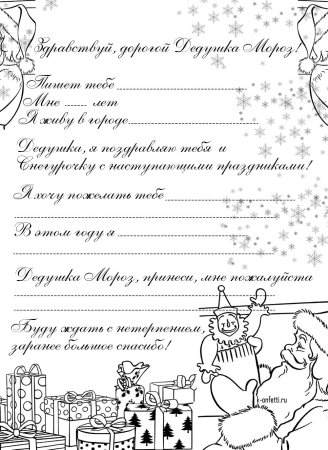 Здравствуй, дорогой Дедушка Мороз!
Пишет тебе
Мне лет
Я живу в городе
Дедушка, я поздравляю тебя и
Снегурочку с наступающими праздниками!
Я хочу пожелать тебе
В этом году я
Дедушка Мороз, принеси, мне пожалуйста
Буду ждать с нетерпением,
заранее большое спасибо!
i-onfetti.ru